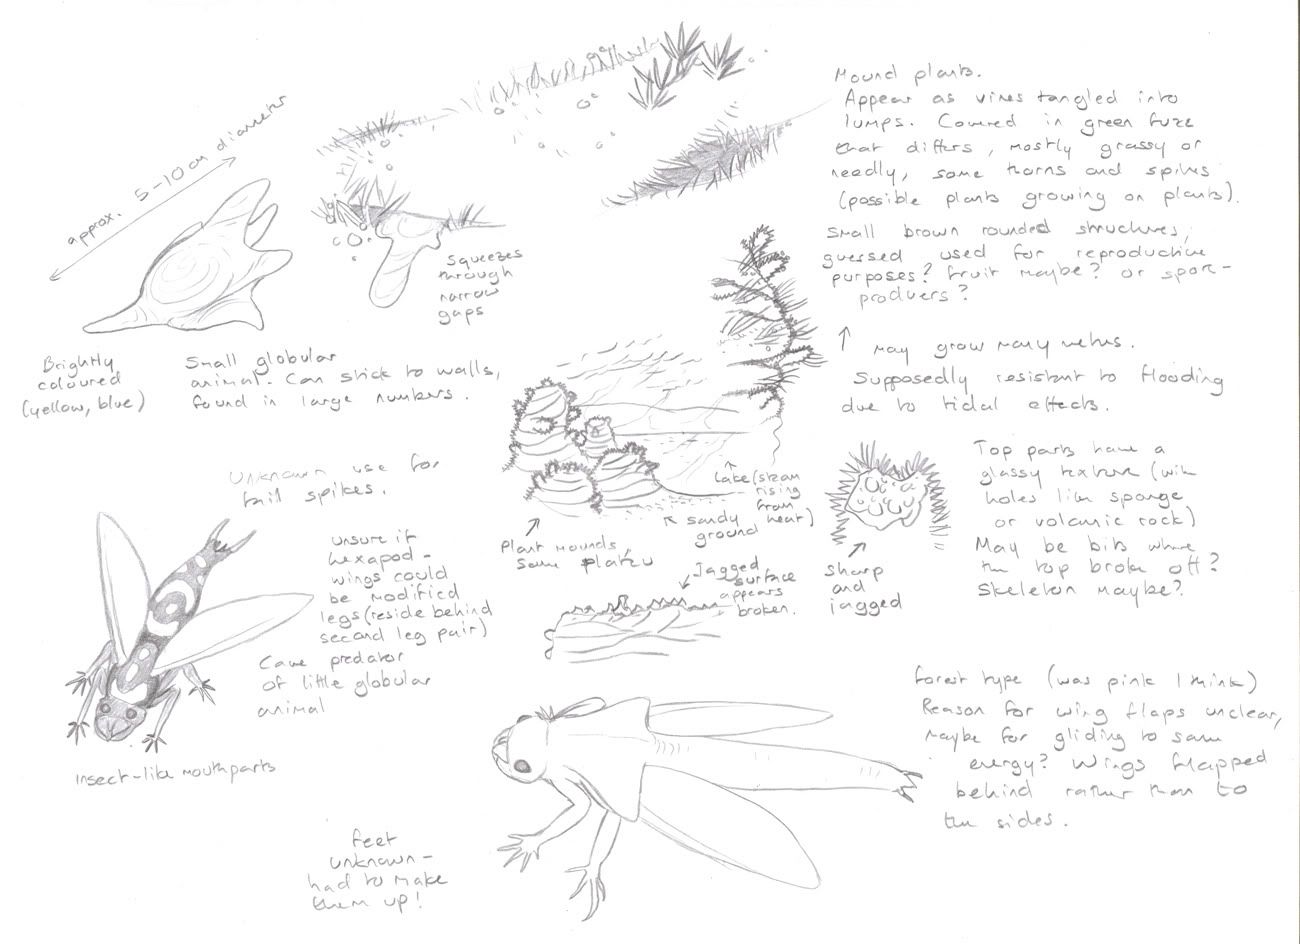 approx. 5-10 cm diameter
Mound plants.
Appear as vines tangled into
lumps. Covered in green fuzz
that differs, mostly grassy or
needly, some thorns and spikes
(possible plants growing on plants).
Small brown rounded structures,
guessed used for reproductive
purposes? Fruit maybe? or spore-
producers?
Squeezes
through
narrow
gaps
Brightly
coloured
(yellow, blue)
Small globular
animal. Can stick to walls,
found in large numbers.
↑ May grow many metres.
Supposedly resistant to flooding
due to tidal effects.
Unknown use for
tail spikes.
Lake (steam
rising
from
heat)
sandy
ground
Plant mounds,
same plateu
Jagged
surface
appears
broken.
sharp
and
jagged
Top parts have a
glassy texture (with
holes like sponge
or volcanic rock)
May be bits where
the top broke off?
Skeleton maybe?
unsure if
hexapod -
wings could
be modified
legs (reside behind
second leg pair)
Cave predator
of little globular
animal
insect-like mouthparts
Forest type (was pink I think)
Reason for wing flaps unclear,
maybe for gliding to save
energy? Wings flapped
behind rather than to
the sides.
feet
unknown -
had to make
them up!